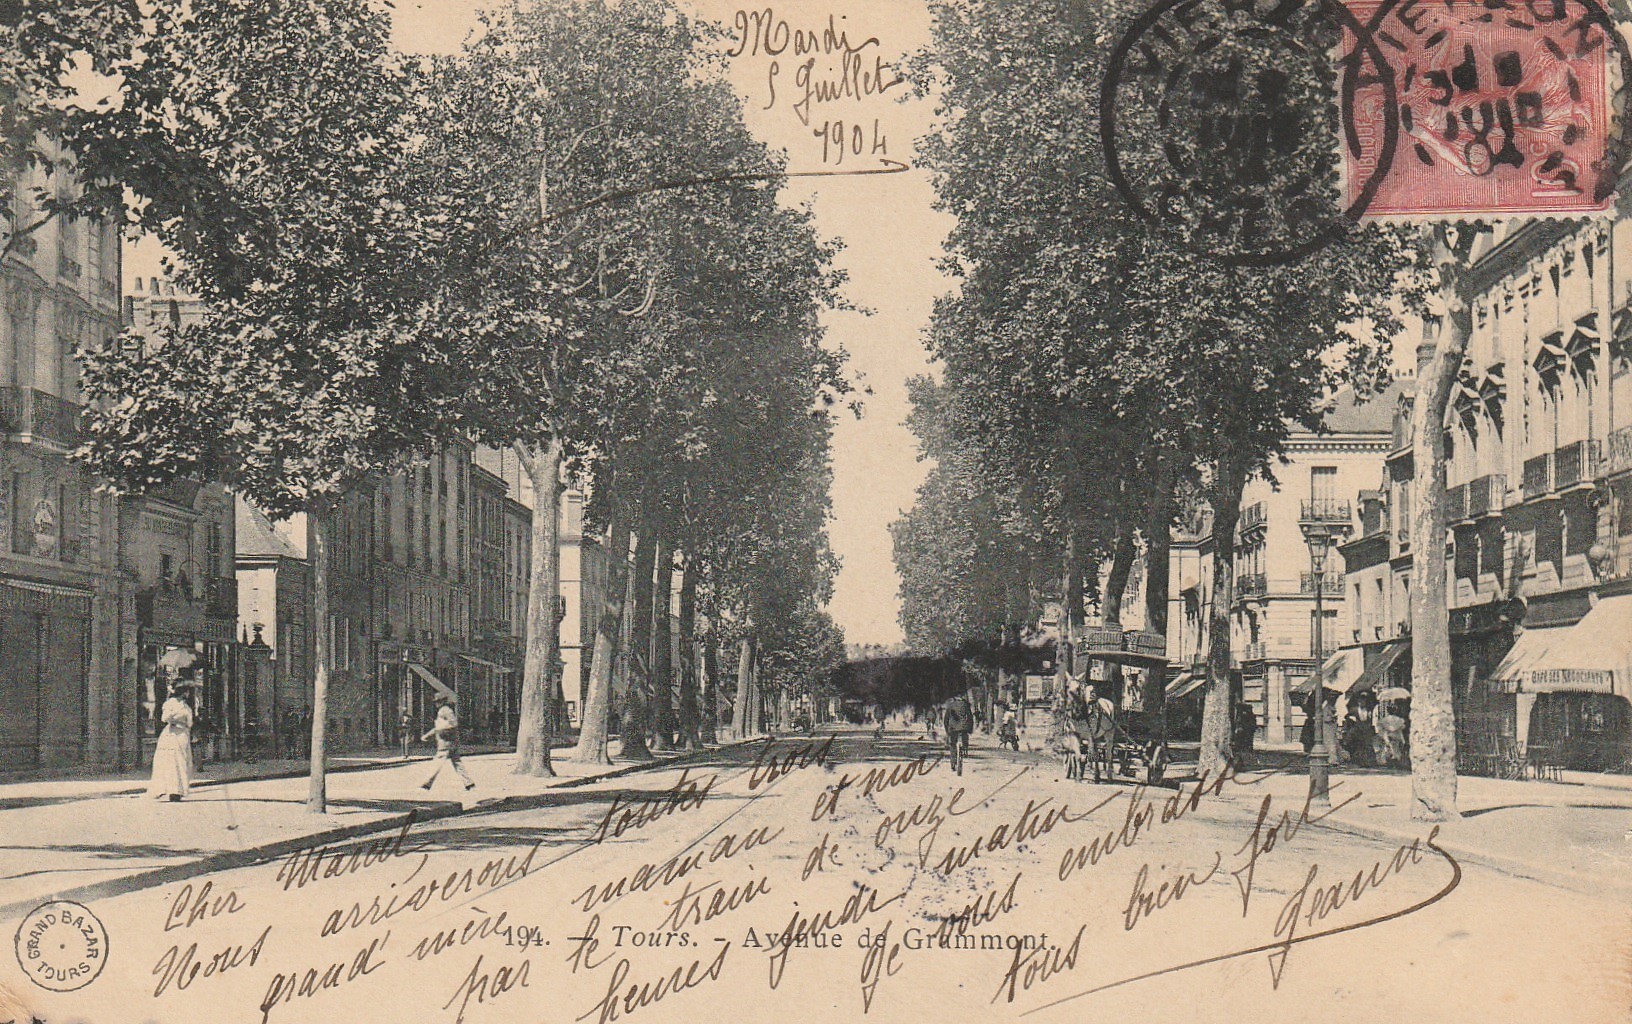 Mardi
5 Juillet
1904
VIERZON
VIERZON
CHER
10
CAFÉ DES NÉGOCIANTS
Cher Marcel,
Nous arriverons toutes trois
grand'mère, maman et moi
par le train de onze
heures jeudi matin
Je vous embrasse
tous bien fort
Jeanne
194. - Tours. - Avenue de Grammont.
GRAND BAZAR
TOURS